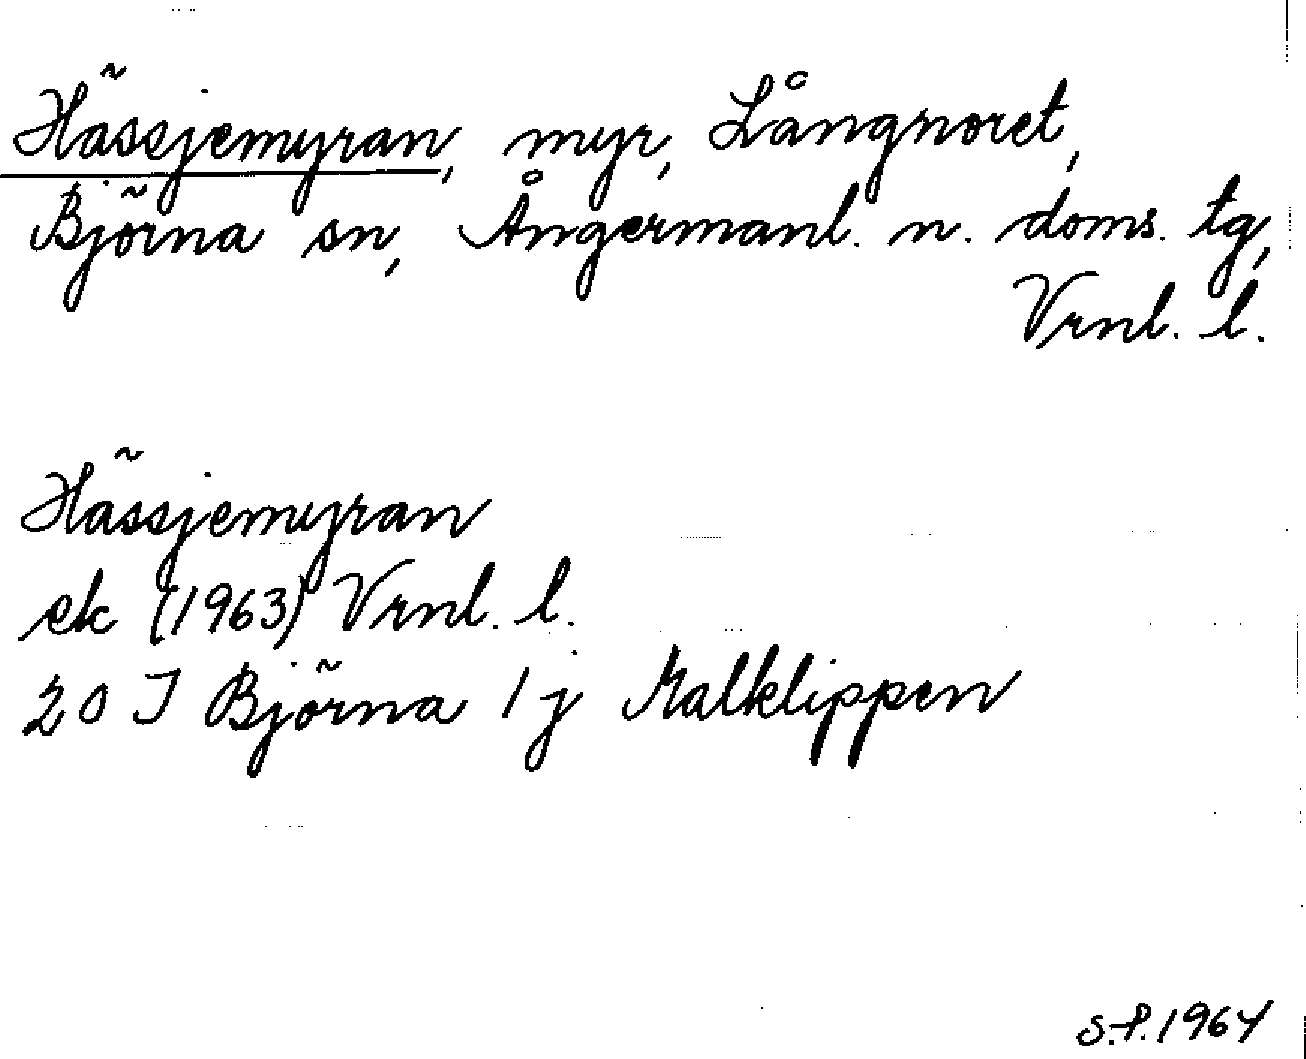 Hässjemyran, myr, Långnoret,
Björna sn, Ångermanl. n. doms. tg,
Vrnl. l.
Hässjemyran
ek (1963) Vrnl. l.
20 I Björna 1j Malklippen
S.F. 1964